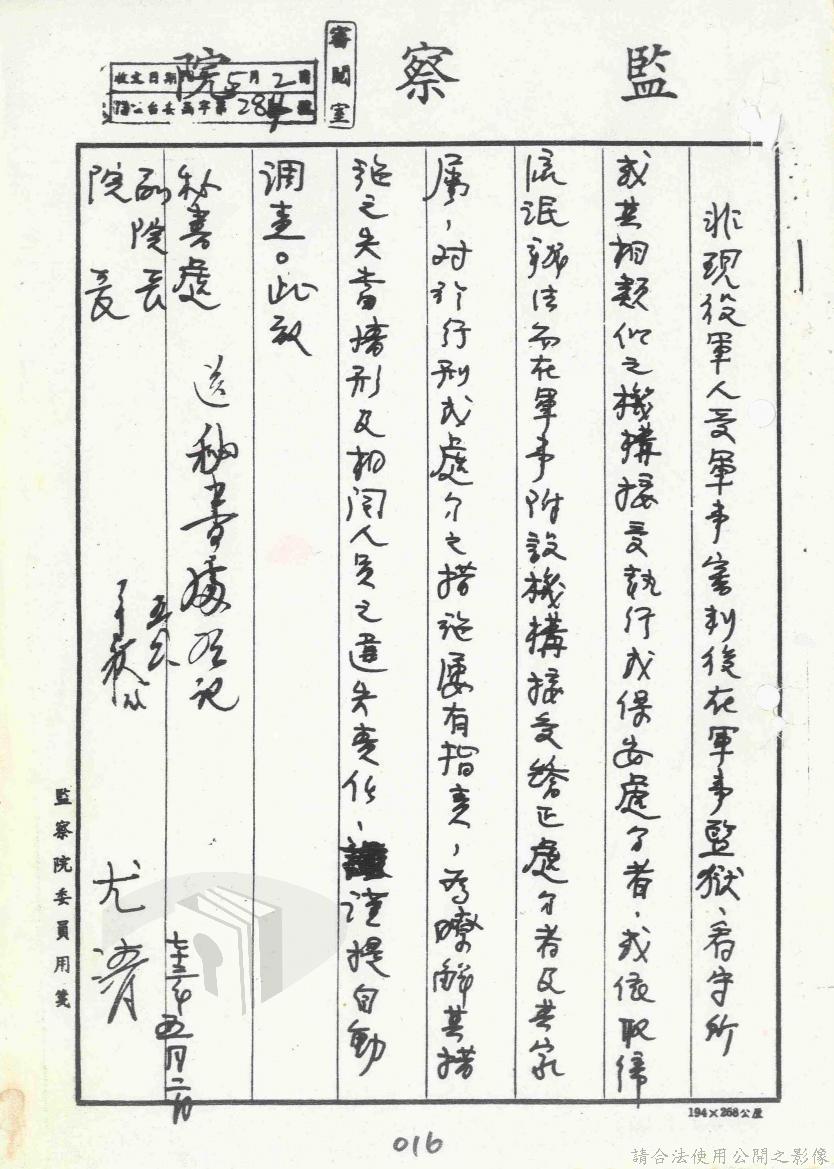 監察院
審閱室
收文日期 5月2日
監台委為字第284號
非現役軍人受軍事審判後在軍事監獄、看守所
或其相類似之機構接受執行或保安處分者，或依取締
流氓辦法而在軍事附設機構接受矯正處分者及其家
屬，對於行刑或處分之措施屢有指責，為瞭解其措
施之失當情形及相關人員之違失責任，謹提自動
調查。此致
秘書處
副院長
院長
送秘書處登記
五、二
尤清
七十三年五月二日
監察院委員用箋
194×268公厘
016
請合法使用公開之影像